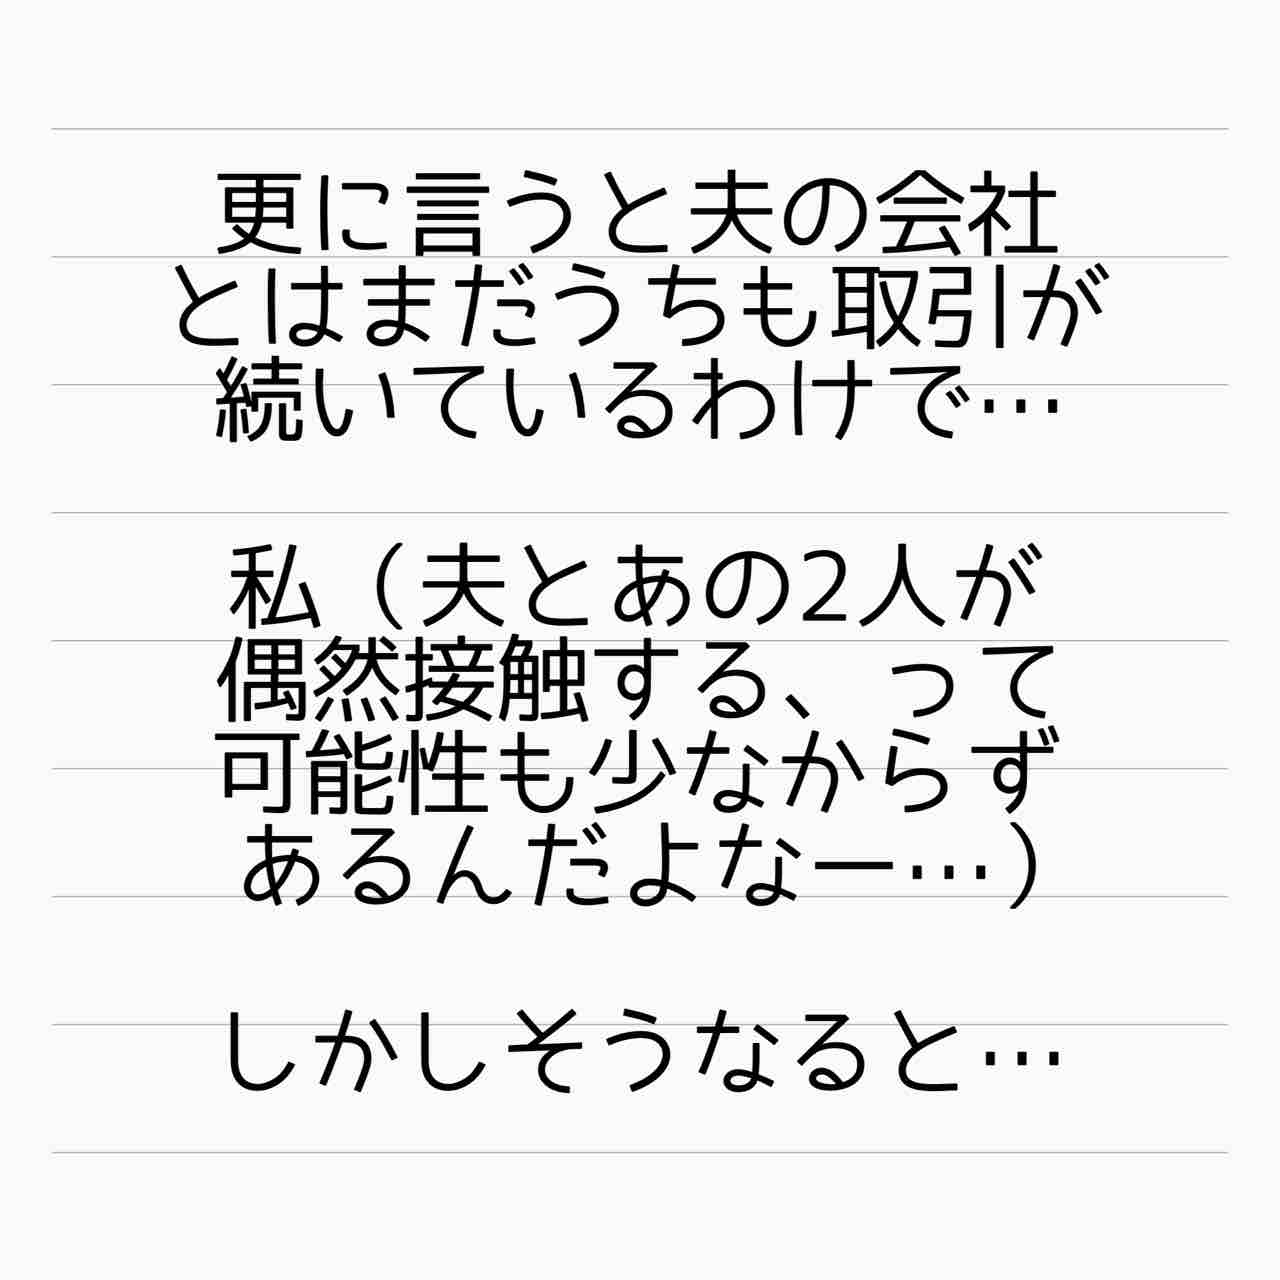 更に言うと夫の会社
とはまだうちも取引が
続いているわけで…
私（夫とあの2人が
偶然接触する、って
可能性も少なからず
あるんだよなー…）
しかしそうなると…